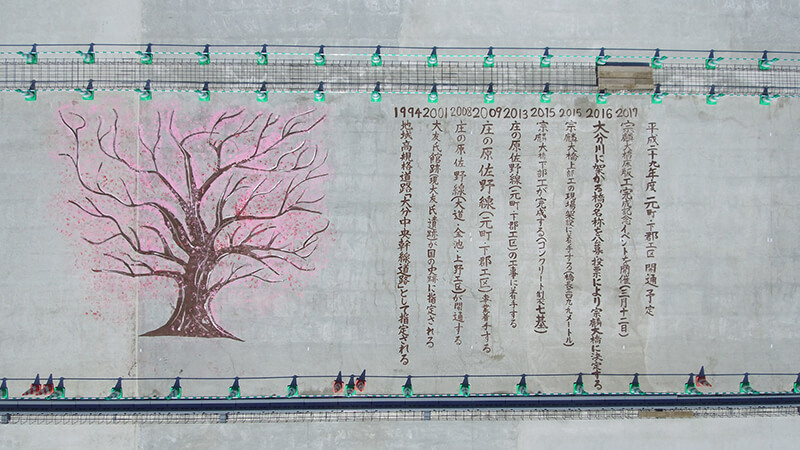 1994
地域高規格道路「大分中央幹線道路」として指定される
2001
大友氏館跡(旧大友氏遺跡)が国の史跡に指定される
2008
庄の原佐野線(大道・金池・上野工区)が開通する
2009
庄の原佐野線(元町・下郡工区)事業着手する
2013
庄の原佐野線(元町・下郡工区)の工事に着手する
2015
宗麟大橋下部工が完成する(コンクリート製七基)
2015
宗麟大橋上部工の現場架設に着手する(橋長二九九メートル)
2016
大分川に架かる橋の名称を公募投票により「宗麟大橋」に決定する
2017
宗麟大橋床版工完成記念イベントを開催(三月十二日)
平成二十九年度(元町・下郡工区)開通予定